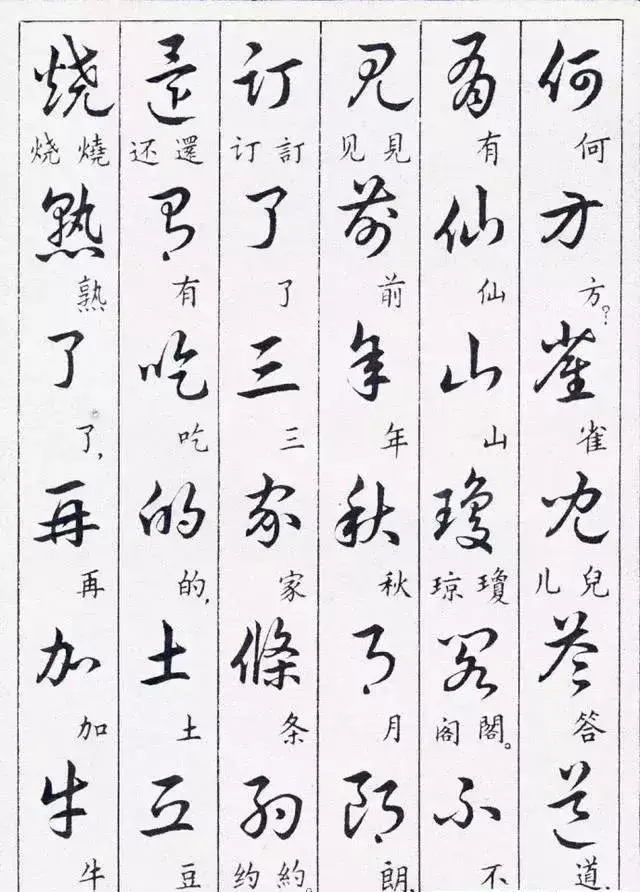 何方雀兒答道
何方？雀儿兒答道：
有仙山瓊閣不
有仙山琼瓊阁閣。不
見前年秋月朗
见見前年秋月朗，
订了三家條約
订訂了三家条约約。
還有吃的土豆
还還有吃的，土豆
烧熟了再加牛
烧燒熟了，再加牛